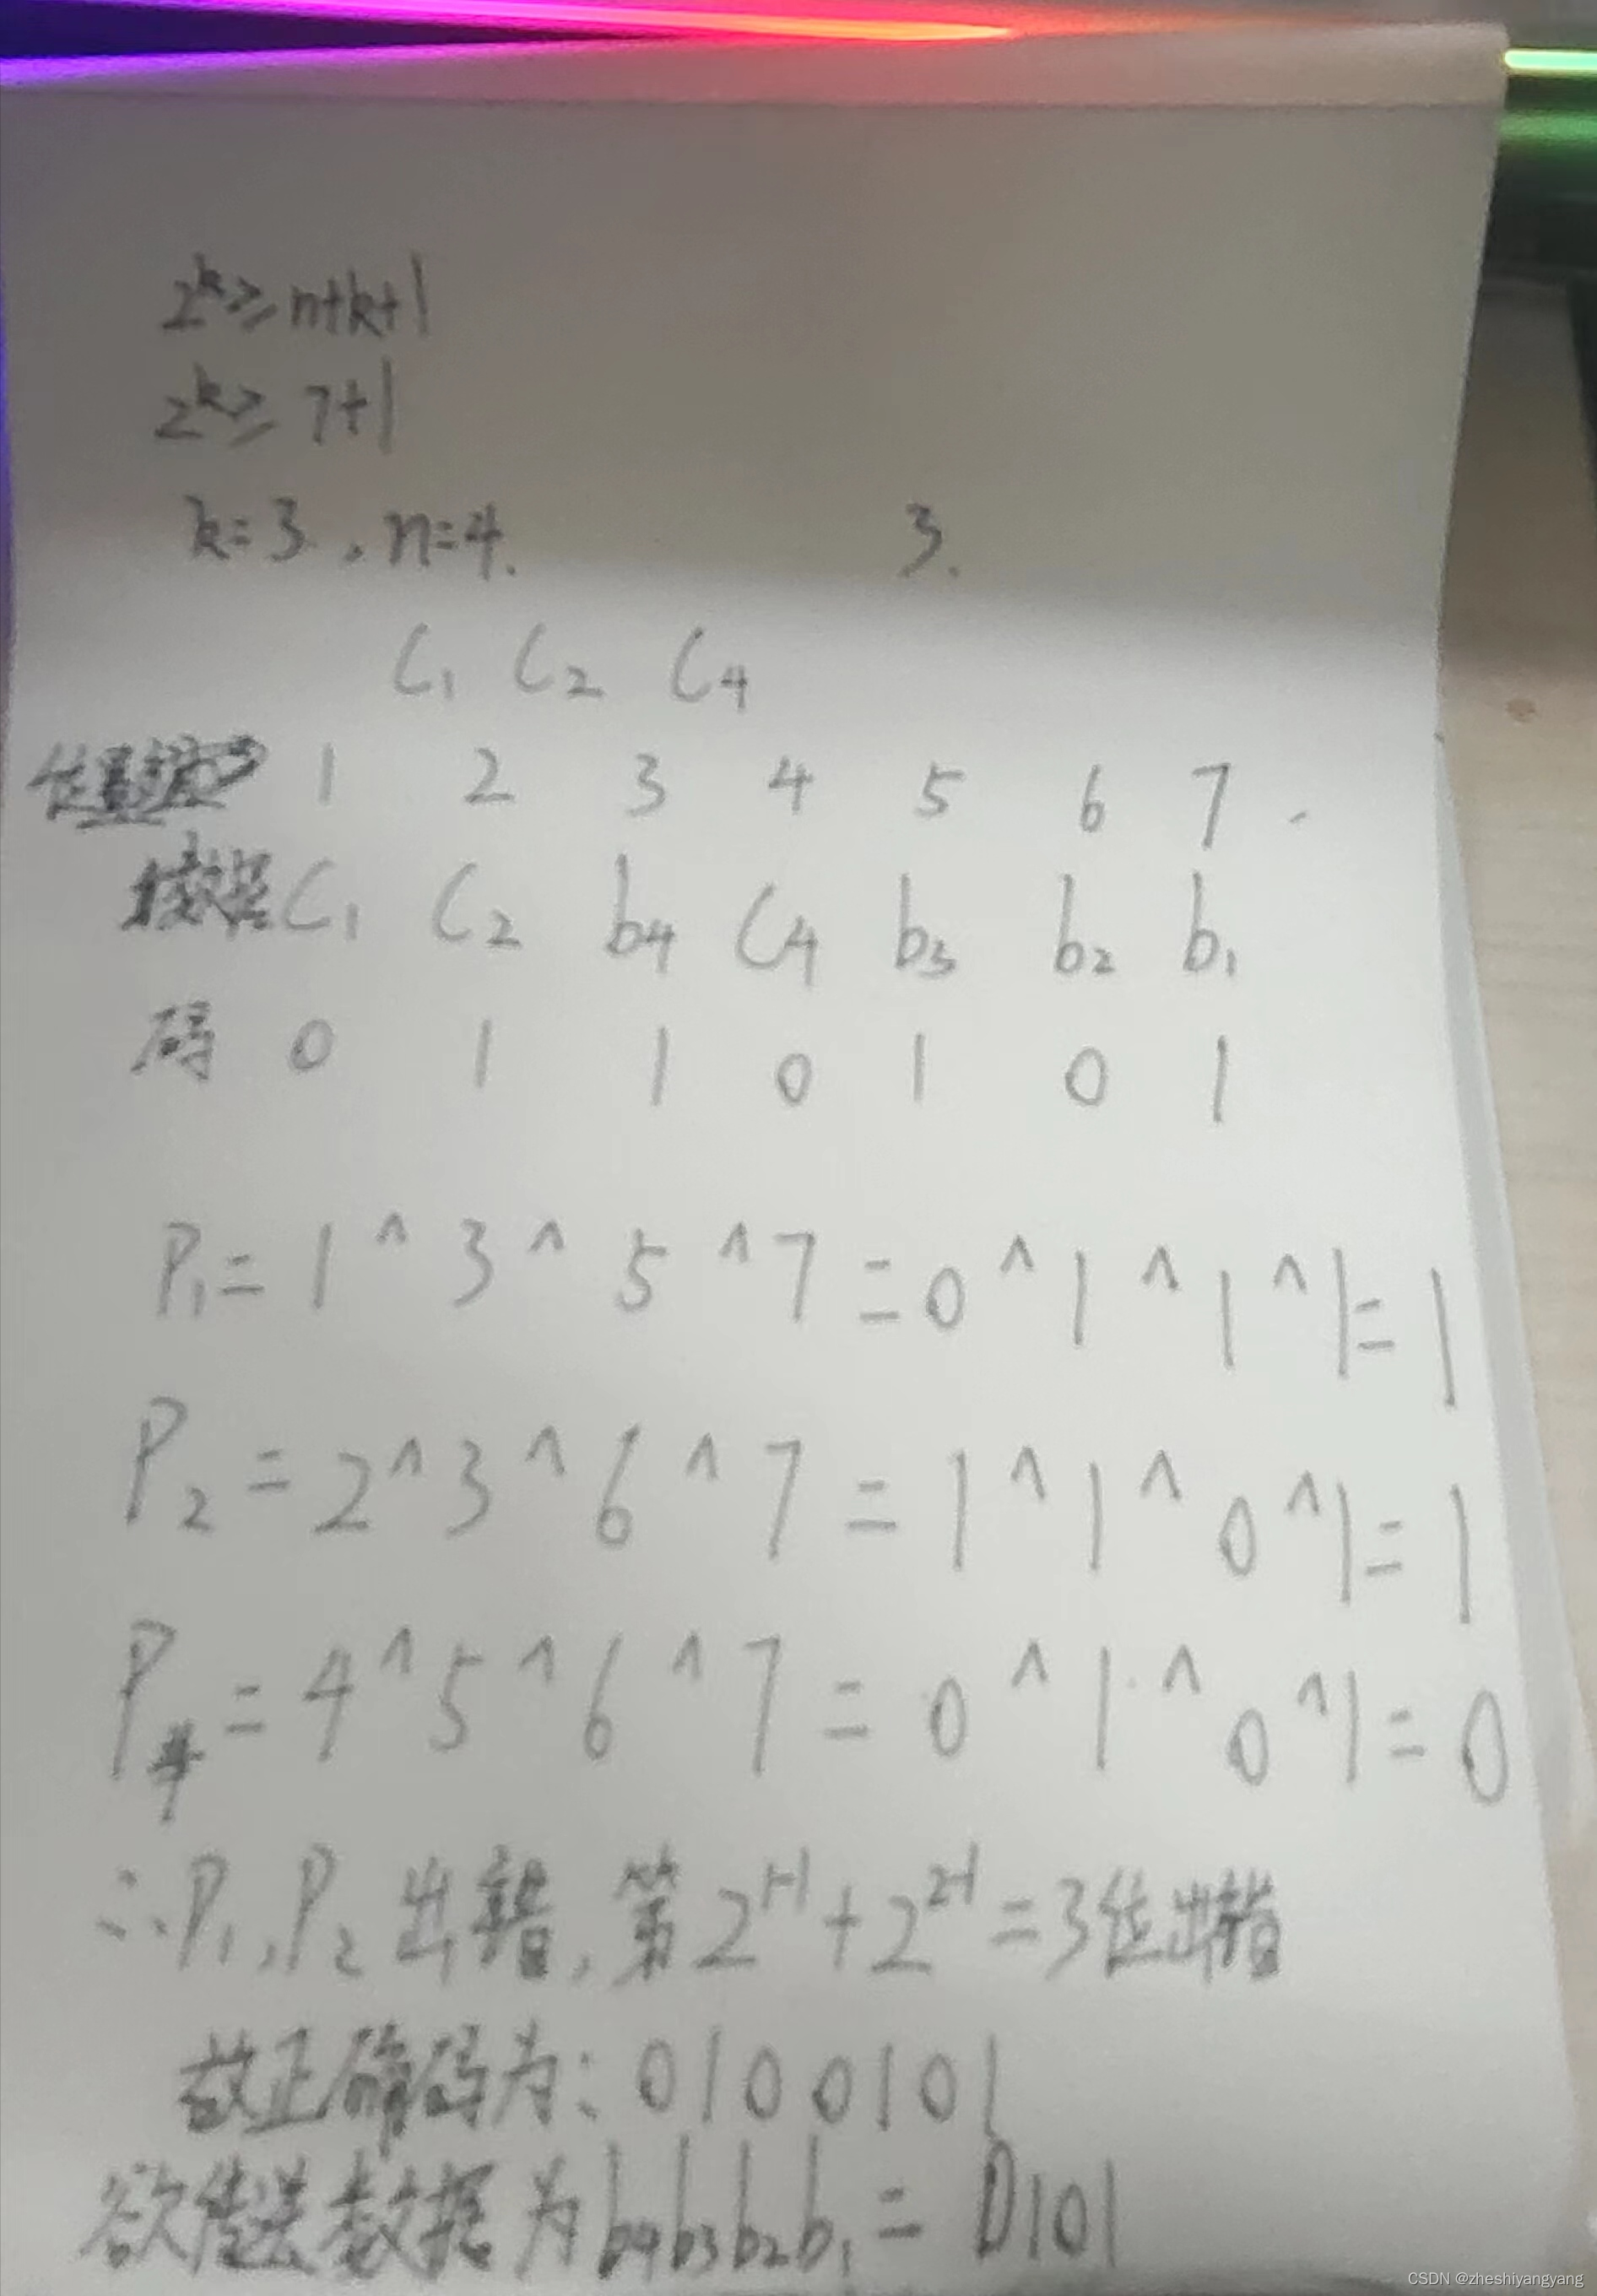 2^k ≥ n+k+1
2^k ≥ 7+1
k=3, n=4.
3.
C₁ C₂ C₄
1 2 3 4 5 6 7
数据 C₁ C₂ b₄ C₄ b₃ b₂ b₁
码 0 1 1 0 1 0 1
P₁ = 1 ^ 3 ^ 5 ^ 7 = 0 ^ 1 ^ 1 ^ 1 = 1
P₂ = 2 ^ 3 ^ 6 ^ 7 = 1 ^ 1 ^ 0 ^ 1 = 1
P₄ = 4 ^ 5 ^ 6 ^ 7 = 0 ^ 1 ^ 0 ^ 1 = 0
∴ P₁, P₂ 出错, 第 2^1-1 + 2^2-1 = 3位出错
故正确码为: 0100101
欲传送数据为 b₄b₃b₂b₁ = 0101
CSDN @zheshiyangyang